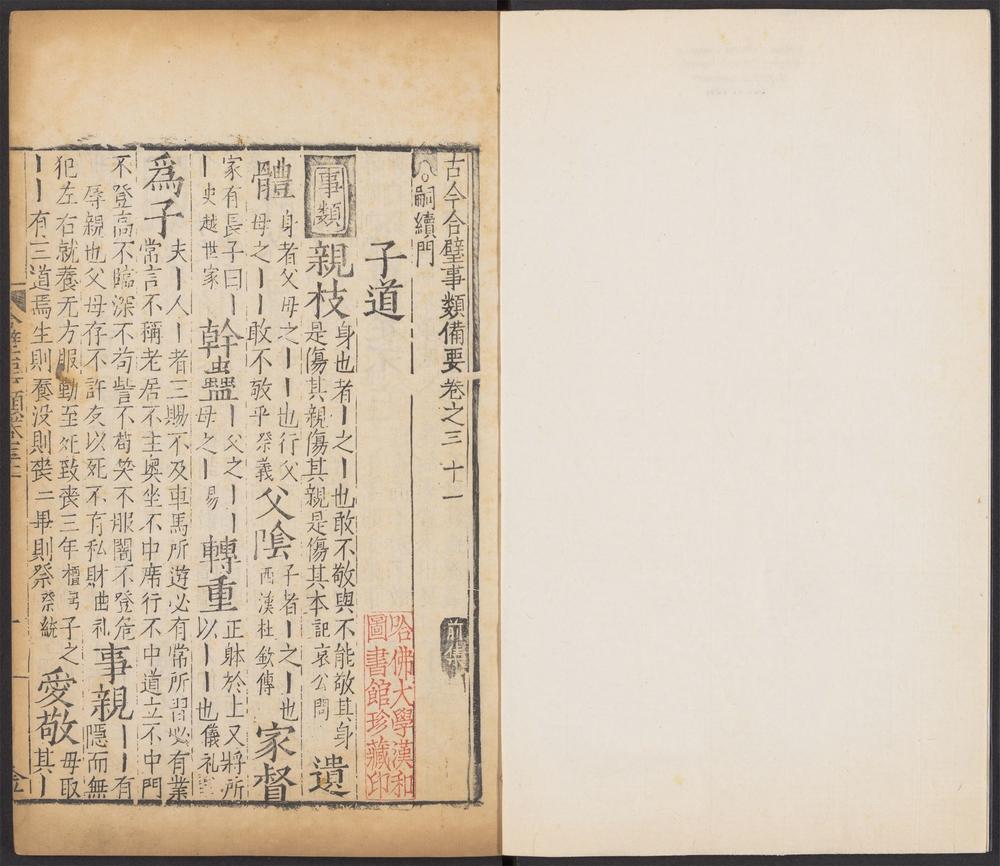 古今合璧事類備要卷之三十一 前集
嗣續門
子道
哈佛大學漢和
圖書館珍藏印
事類 親枝 身也者丨之丨也敢不敬與不能敬其身
是傷其親傷其親是傷其本記哀公問 遺
體 身者父母之丨丨也行父
母之丨丨敢不敬乎祭義 父陰 子者丨之丨也
西漢杜欽傳 家督
家有長子曰丨
丨史越世家 幹蠱 丨父之丨丨
母之丨易 轉重 正躰於上又將所
以丨丨也儀礼
爲子 夫丨人丨者三賜不及車馬所遊必有常所習必有業
常言不稱老居不主奥坐不中席行不中道立不中門
不登高不臨深不苟訾不苟笑不服闇不登危
辱親也父母存不許友以死不有私財曲礼 事親 丨丨有
隱而無
犯左右就養无方服勤至死致喪三年檀弓 子之
丨丨有三道焉生則養没則喪二畢則祭祭統 愛敬 毋取
其丨